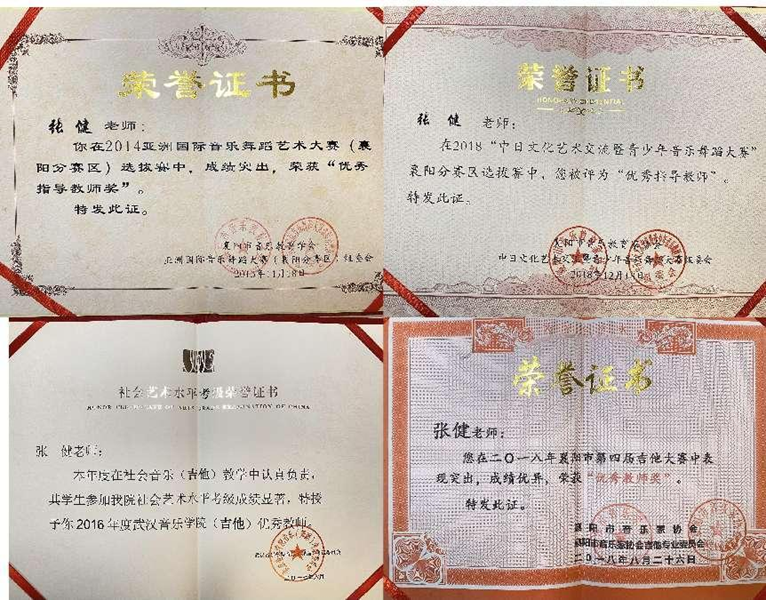 荣誉证书
张 健 老师：
你在2014亚洲国际音乐舞蹈艺术大赛（襄
阳分赛区）选拔赛中，成绩突出，荣获“优秀
指导教师奖”。
特发此证。
亚洲国际音乐舞蹈大赛（襄阳分赛区）组委会
荣誉证书
张 健 老师：
在2018“中日文化艺术交流暨青少年音乐舞蹈大赛”
襄阳分赛区选拔赛中，您被评为“优秀指导教师”。
特发此证。
2018年12月
社会艺术水平考级荣誉证书
张 健老师：
本年度在社会音乐（吉他）教学中认真负责，
其学生参加我院社会艺术水平考级成绩显著，特授
予你2016年度武汉音乐学院（吉他）优秀教师。
荣誉证书
张健老师：
您在二〇一八年襄阳市第四届吉他大赛中表
现突出，成绩优异，荣获“优秀教师奖”。
特发此证。
襄阳市音乐家协会
襄阳市音乐家协会吉他专业委员会
二〇一八年八月二十六日